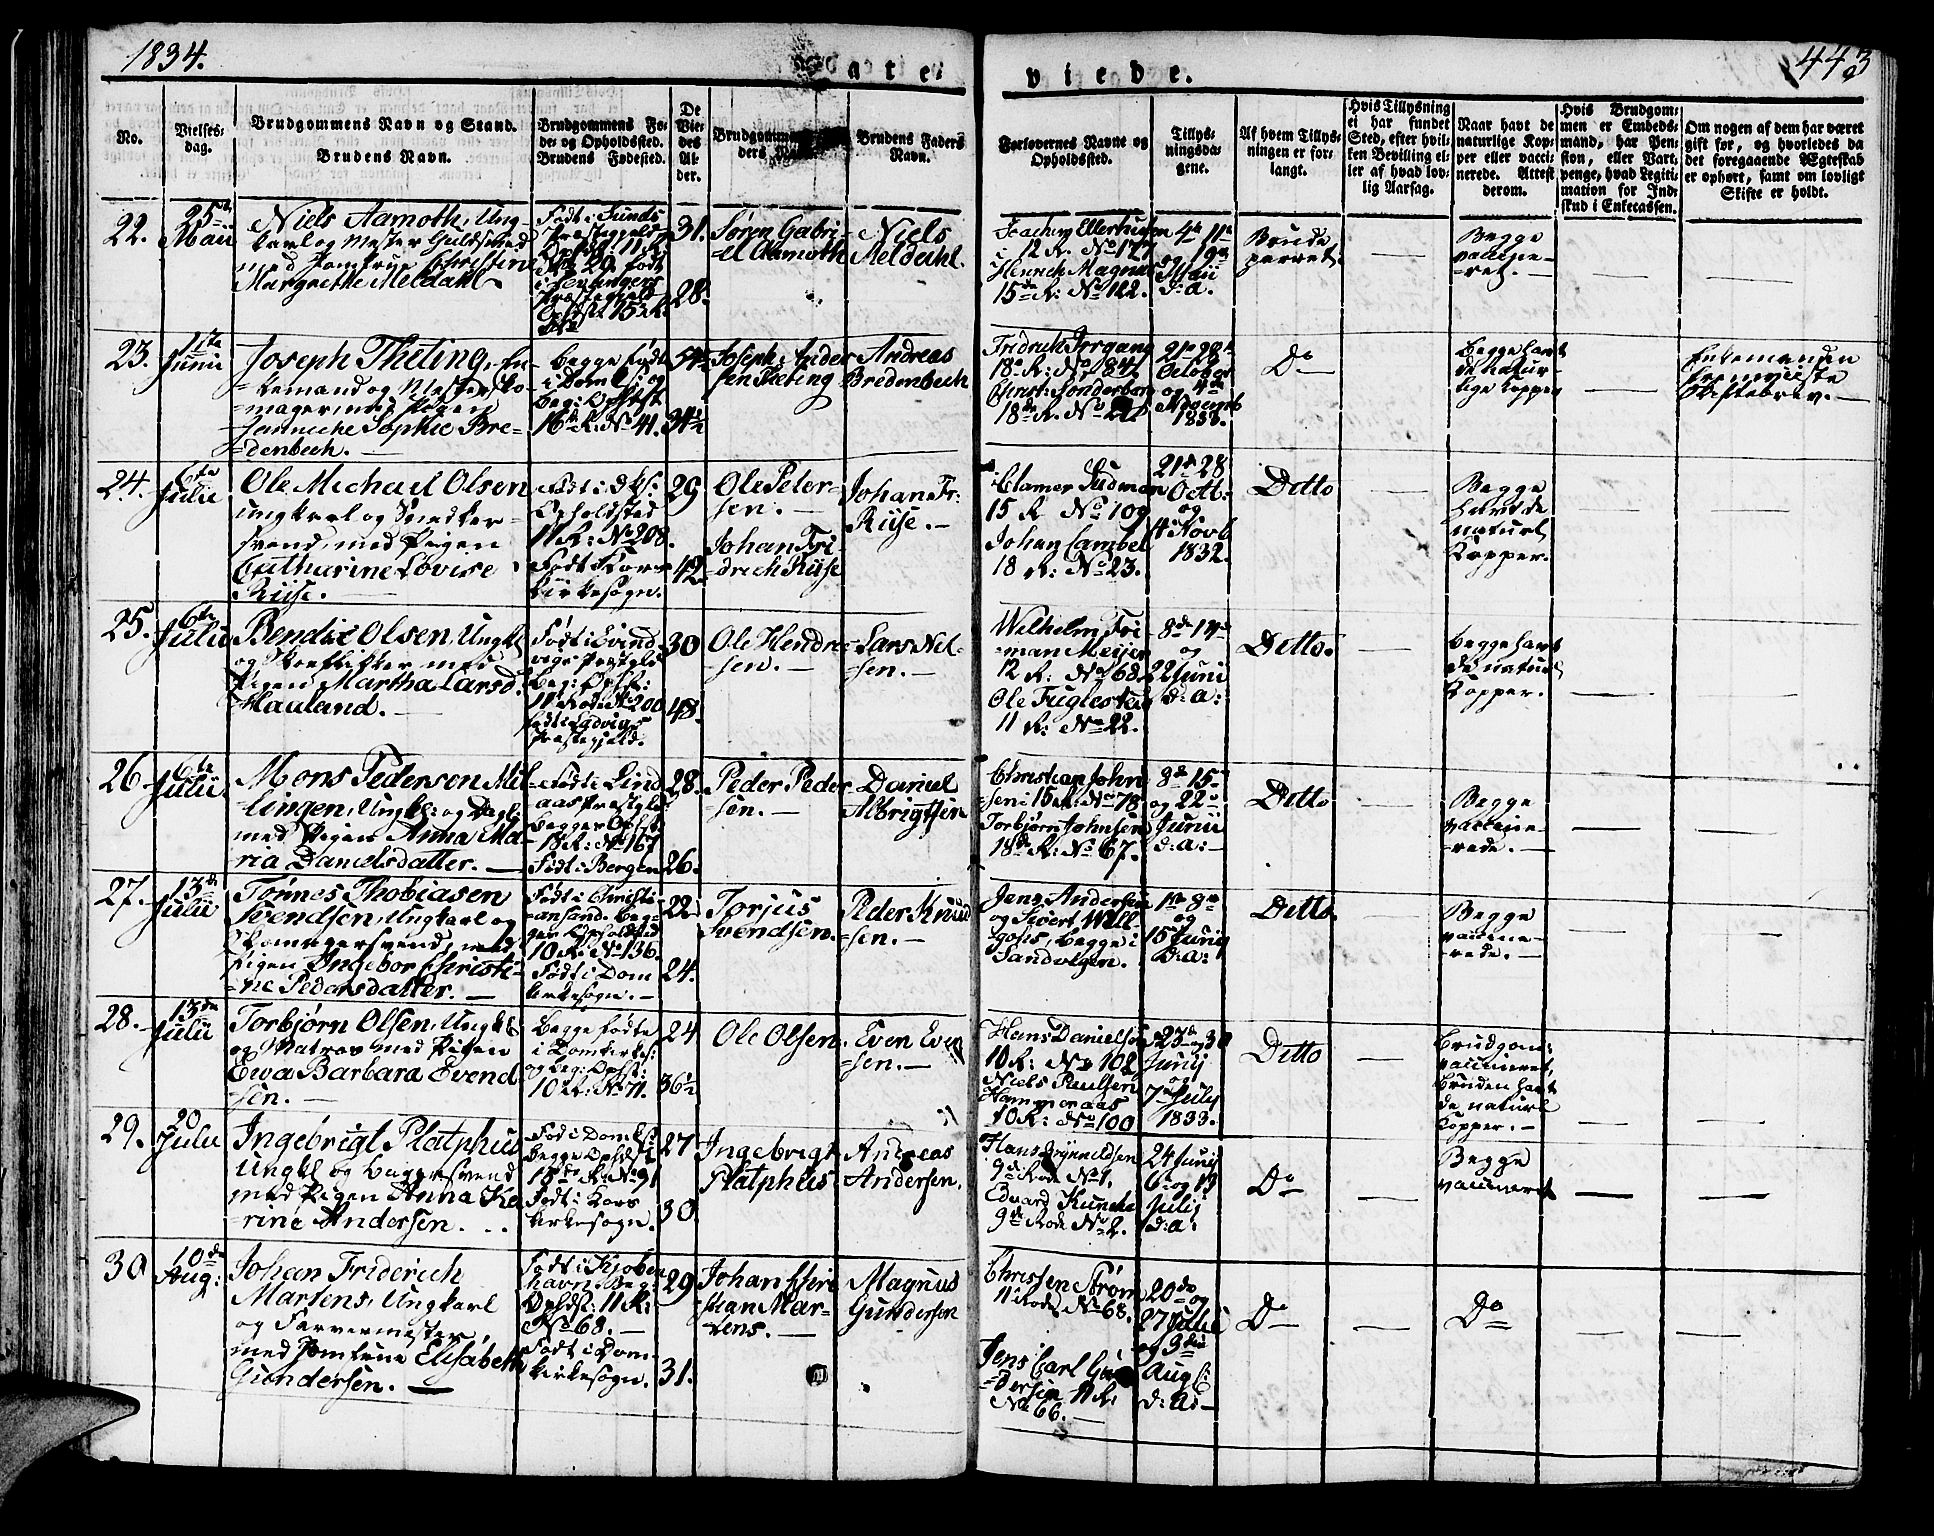 1834.
443
viede.
No.
Vielses-
dag.
Brudgommens Navn og Stand.
Brudens Navn.
Brudgommens Fø-
de- og Opholdssted.
Brudens Fødested.
De
Vie-
des
Al-
der.
Brudens Faders
Navn.
Forlovernes Navne og
Opholdssted.
Tillys-
ningsda-
gene.
Af hvem Tillys-
ningen er for-
langt.
Hvis Tillysning
ei har fundet
Sted, efter hvil-
ken Bevilling el-
ler af hvad lov-
lig Aarsag.
Naar havt de
naturlige Kop-
per eller vacci-
nerede. Attest
derom.
Hvis Brudgom-
men er Embeds-
mand, har Pen-
sion, eller Vart-
penge, hvad Legiti-
mation for Ind-
skud i Enkecassen.
Om nogen af dem har været
gift før, og hvorledes da
det foregaaende Ægteskab
er ophørt, samt om lovligt
Skifte er holdt.
22.
25de
Maii
Niels Aamoth, Ung-
karl og Mester Guldsmed
med Jomfrue Christine
Margrethe Meldahl
Født i Sunds
31.
28.
Søren Gabri-
el Aamoth
Niels
Meldahl.
Joachim Ellerhusen
12 R. No 177
Henrich Magnus
15de R: No 122.
4de 11te
og 19de
Maii
d: a.
Brude
parret.
Begge
vaccine-
ret.
23.
11te
Junii
Joseph Theting, En-
kemand og Mester Sko-
mager med Pigen
Janniche Sophie Bre-
denbech.
Begge født
i Domk: og
Beg: Ophst
16de R: No 41.
54½
34½
Joseph Ander
sen Theting
Andreas
Bredenbech
Fridrich Irrgang
18de R: No 84½
Christ: Sonderborg
18de R. No
21de 28de
October
og 4de
Novemb
1833.
Do
Begge havt
de natur-
lige Kopper
Enkemanden
fremviiste
Skiftebrev.
24.
6te
Julii
Ole Michael Olsen
Ungkarl og Snedker-
svend, med Pigen
Catharine Lovise
Riise.
Opholdsted
11 R: No 208.
Født Kors
kirkesogn.
29
42.
Ole Peter-
sen.
Johan Fri-
drich Riise
Johan Fr:
Riise.
Clamer Sudman
15 R No 109
Johan Cambel
18 R: No 23.
21de 28
Octb.
og
4 Novb
1832.
Ditto
Begge
havt de
naturl
Kopper.
25.
6te
Julii
Bendix Olsen, Ungkl
med
Pigen Martha Larsd.
Mauland.
Født i Evind
vigs Prestgld
Beg: Ophst:
11 Rode No 200
Prestegjeld.
30
48.
Ole Hendric-
sen.
Lars Nel-
sen.
Wilhelm Fri
man Meijer
12 R. No 68.
Ole Fuglestad
11 R: No 22.
8de
og
22 Juni
d: a:
Ditto.
Begge havt
de naturl
Kopper.
26.
6te
Julii
Mons Pedersen Mil-
lingen, Ungkl: og Dagl
med Pigen Anna Ma-
ria Danielsdatter.
Født i Lind
aas Prestgld
Begges Ophst
18 R: No 167
Født i Bergen
28.
26.
Peder Peder
sen.
Daniel
Albrigtsen
Christian John
sen 15 R: No 78
Torbjørn Johnsen
18de R: No 67.
8de 15de
og 22de
Junii
d: a:
Ditto
Begge
vaccine-
rede.
27.
13de
Julii
Tønnes Thobiasen
Svendsen, Ungkarl og
svend, med
Pigen Ingebor Christi-
ne Pedersdatter.
Født i Christi-
ansand. Beg-
ges Opholdsted
10 R: No 136.
Født i Dom
kirkesogn.
22
24.
Torjus
Svendsen.
Peder Knud
sen.
Jens Andersen
og Sivert Will-
gohs, begge i
Sandvigen.
1te 8de
og
15 Junij
D: a:
Ditto.
Begge
vaccine-
rede.
28.
13de
Julii
Torbjørn Olsen, Ungkl
og Matros med Pigen
Ewa Barbara Evend
sen.
Begge fødte
i Domkirkes:
og Beg: Ophst:
10 R: No 71.
24
36½
Ole Olsen.
Even Even
sen.
Hans Danielsen
10 R: No 108
Niels Paulsen
Hammeraas
10 R: No 100
23de og 30
Junij
og
7de July
1833.
Ditto
Brudgom:
vaccineret,
Bruden havt
de naturl
Kopper.
29.
20
Julii
Ingebrigt Platphus
Ungkl og Baggersvend
med Pigen Anna Ka
rine Andersen.
Fød i Domks:
Begges Ophst i
18de R. No 91
Født i Kors
kirkesogn.
27
30
Ingebrigt
Platphus
Andreas
Andersen.
Hans Brynildsen
9de Rode No 1.
Edvard Kuncke
9de Rode No 2.
24 Junij
6te og 13
Julij
d: a:
Do
Begge
vaccineret
30
10de
Aug:
Johan Friderich
Martens, Ungkarl
og Farvermester,
med Jomfrue Elisabeth
Gundersen.
Født i Kjøben
havn. Beg:
Ophdst: 11 R:
No 68.
Født i Dom-
kirkesogn.
29
31.
Johan Chri
stian Mar-
tens.
Magnus
Gundersen
Christen Strøm
11 Rode No 68.
Jens Carl Gun
dersen 11 R:
No 66.
20de og
27 Julii
og 3die
Aug
d: a:
Do
Do